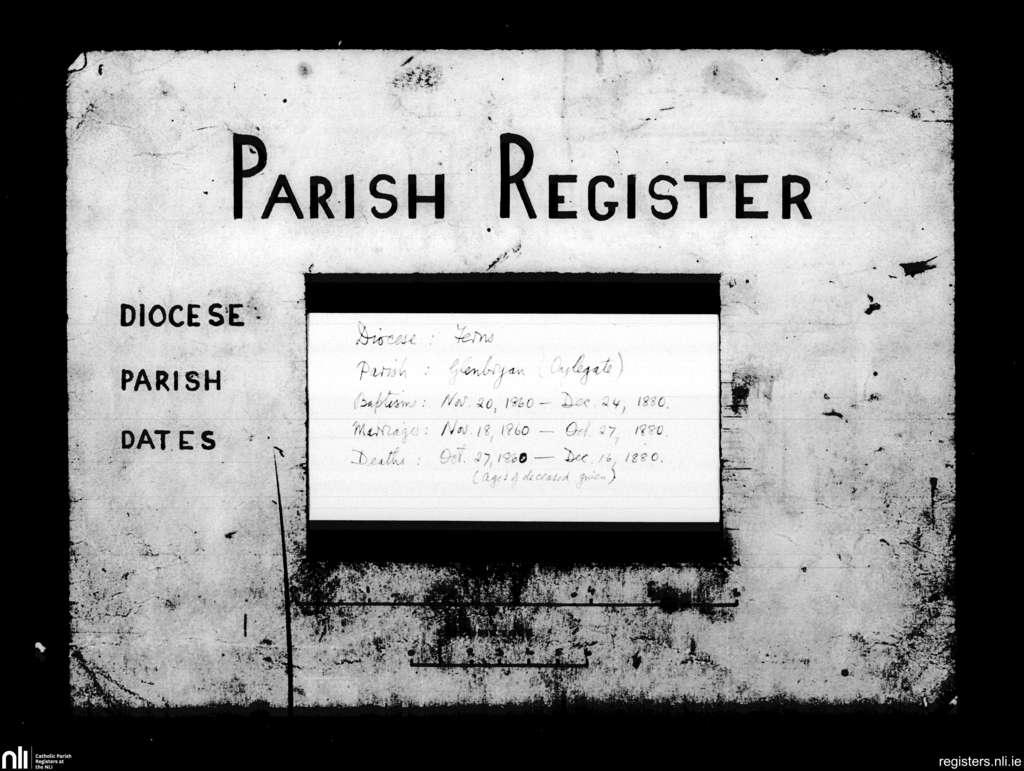 PARISH REGISTER
DIOCESE
PARISH
DATES
Diocese : Ferns
Parish : Glenbryan (Oylegate)
Baptisms : Nov. 20, 1860 — Dec. 24, 1880.
Marriages : Nov. 18, 1860 — Oct. 27, 1880.
Deaths : Oct. 27, 1860 — Dec. 16, 1880.
(ages of deceased given)
nli
Catholic Parish
Registers at
the NLI
registers.nli.ie